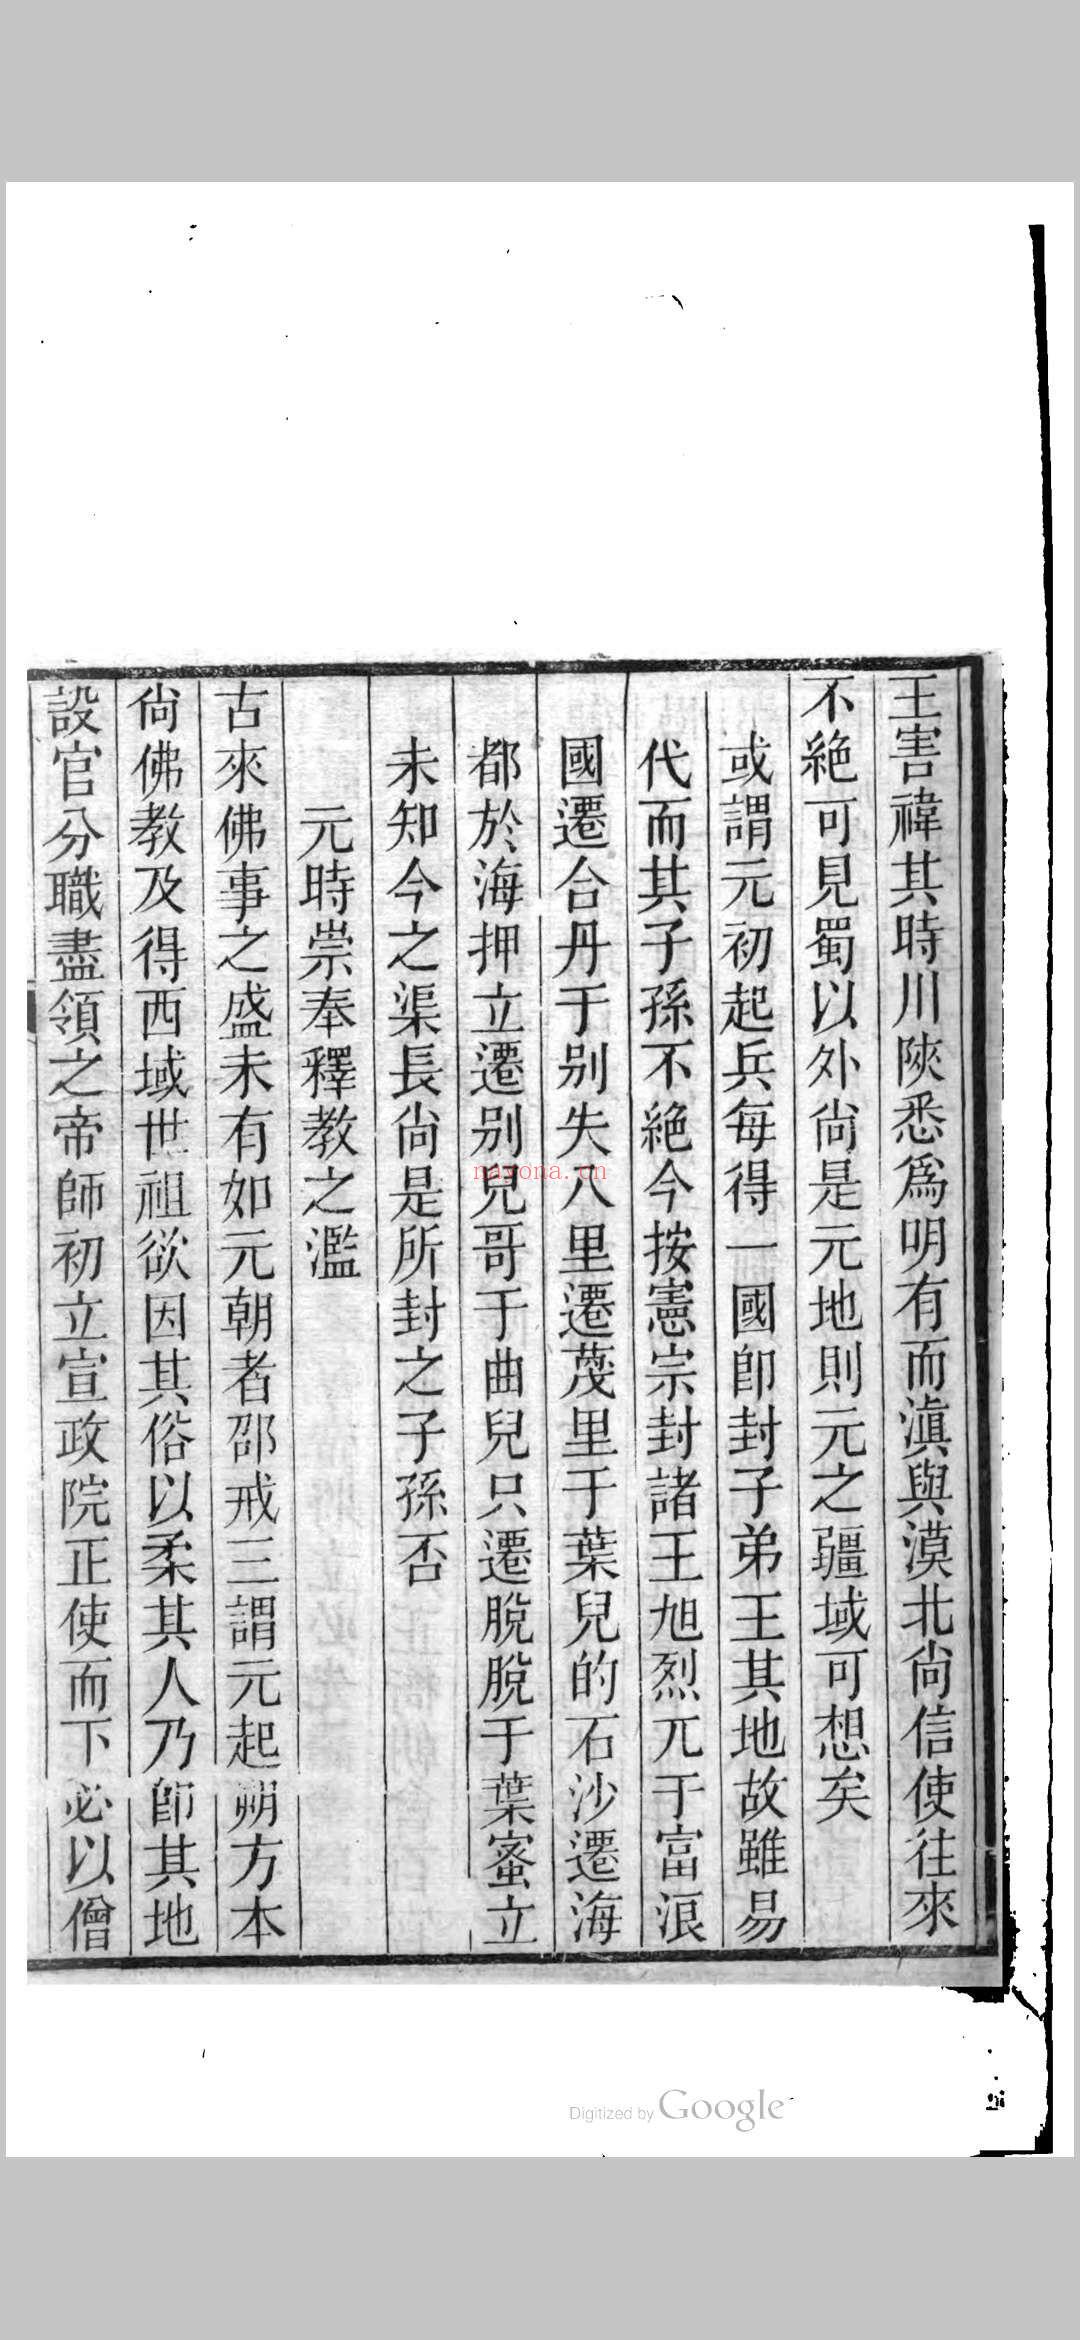 王害禕其時川陝悉爲明有而滇與漠北尙信使往來
不絶可見蜀以外尙是元地則元之疆域可想矣
或謂元初起兵每得一國卽封子弟王其地故雖易
代而其子孫不絶今按憲宗封諸王旭烈兀于富浪
國遷合丹于别失八里遷蔑里于葉兒的石沙遷海
都於海押立遷别兒哥于曲兒只遷脫脫于葉蜜立
未知今之渠長尙是所封之子孫否
元時崇奉釋教之濫
古來佛事之盛未有如元朝者邵戒三謂元起朔方本
尙佛教及得西域世祖欲因其俗以柔其人乃卽其地
設官分職盡領之帝師初立宣政院正使而下必以僧
nayona.cn
Digitized by Google